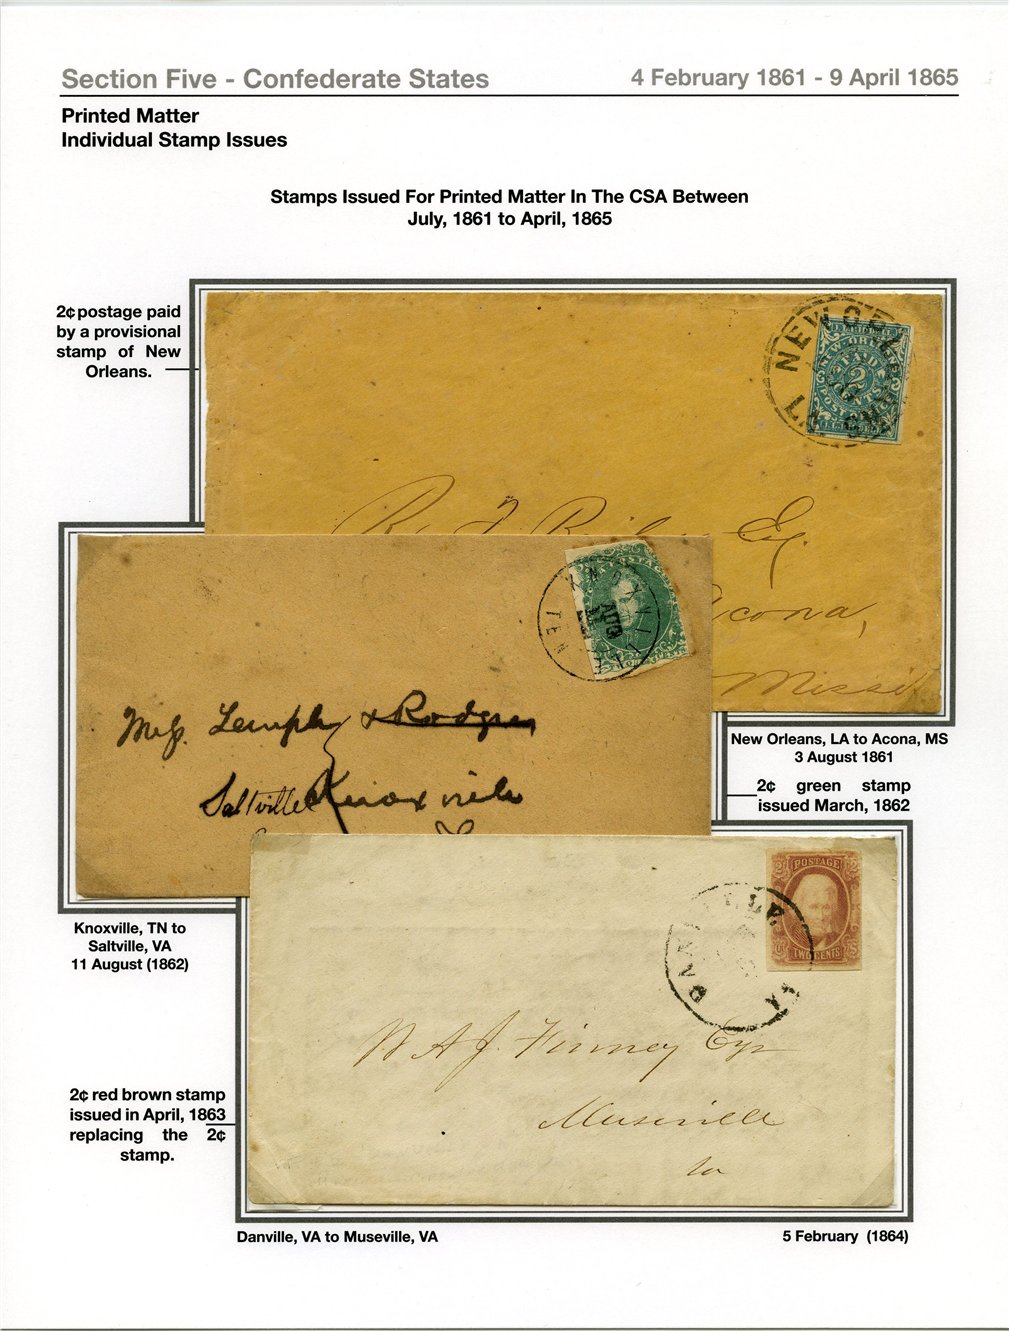 Section Five - Confederate States
4 February 1861 - 9 April 1865
Printed Matter
Individual Stamp Issues
Stamps Issued For Printed Matter In The CSA Between
July, 1861 to April, 1865
2¢ postage paid
by a provisional
stamp of New
Orleans.
NEW
LA
J.L. RIDDELL
NEW ORLEANS
PAID
2
CENTS
POST OFFICE
Esq.
Acona,
Missi
New Orleans, LA to Acona, MS
3 August 1861
KNOXVILLE
TEN
AUG
11
Mess.
Rodgers,
Saltville Knoxville
2¢ green stamp
issued March, 1862
Knoxville, TN to
Saltville, VA
11 August (1862)
2 POSTAGE 2
TWO CENTS
DANVILLE
VA
W A J. Finney Esqr
Museville
Va
2¢ red brown stamp
issued in April, 1863
replacing the 2¢
stamp.
Danville, VA to Museville, VA
5 February (1864)